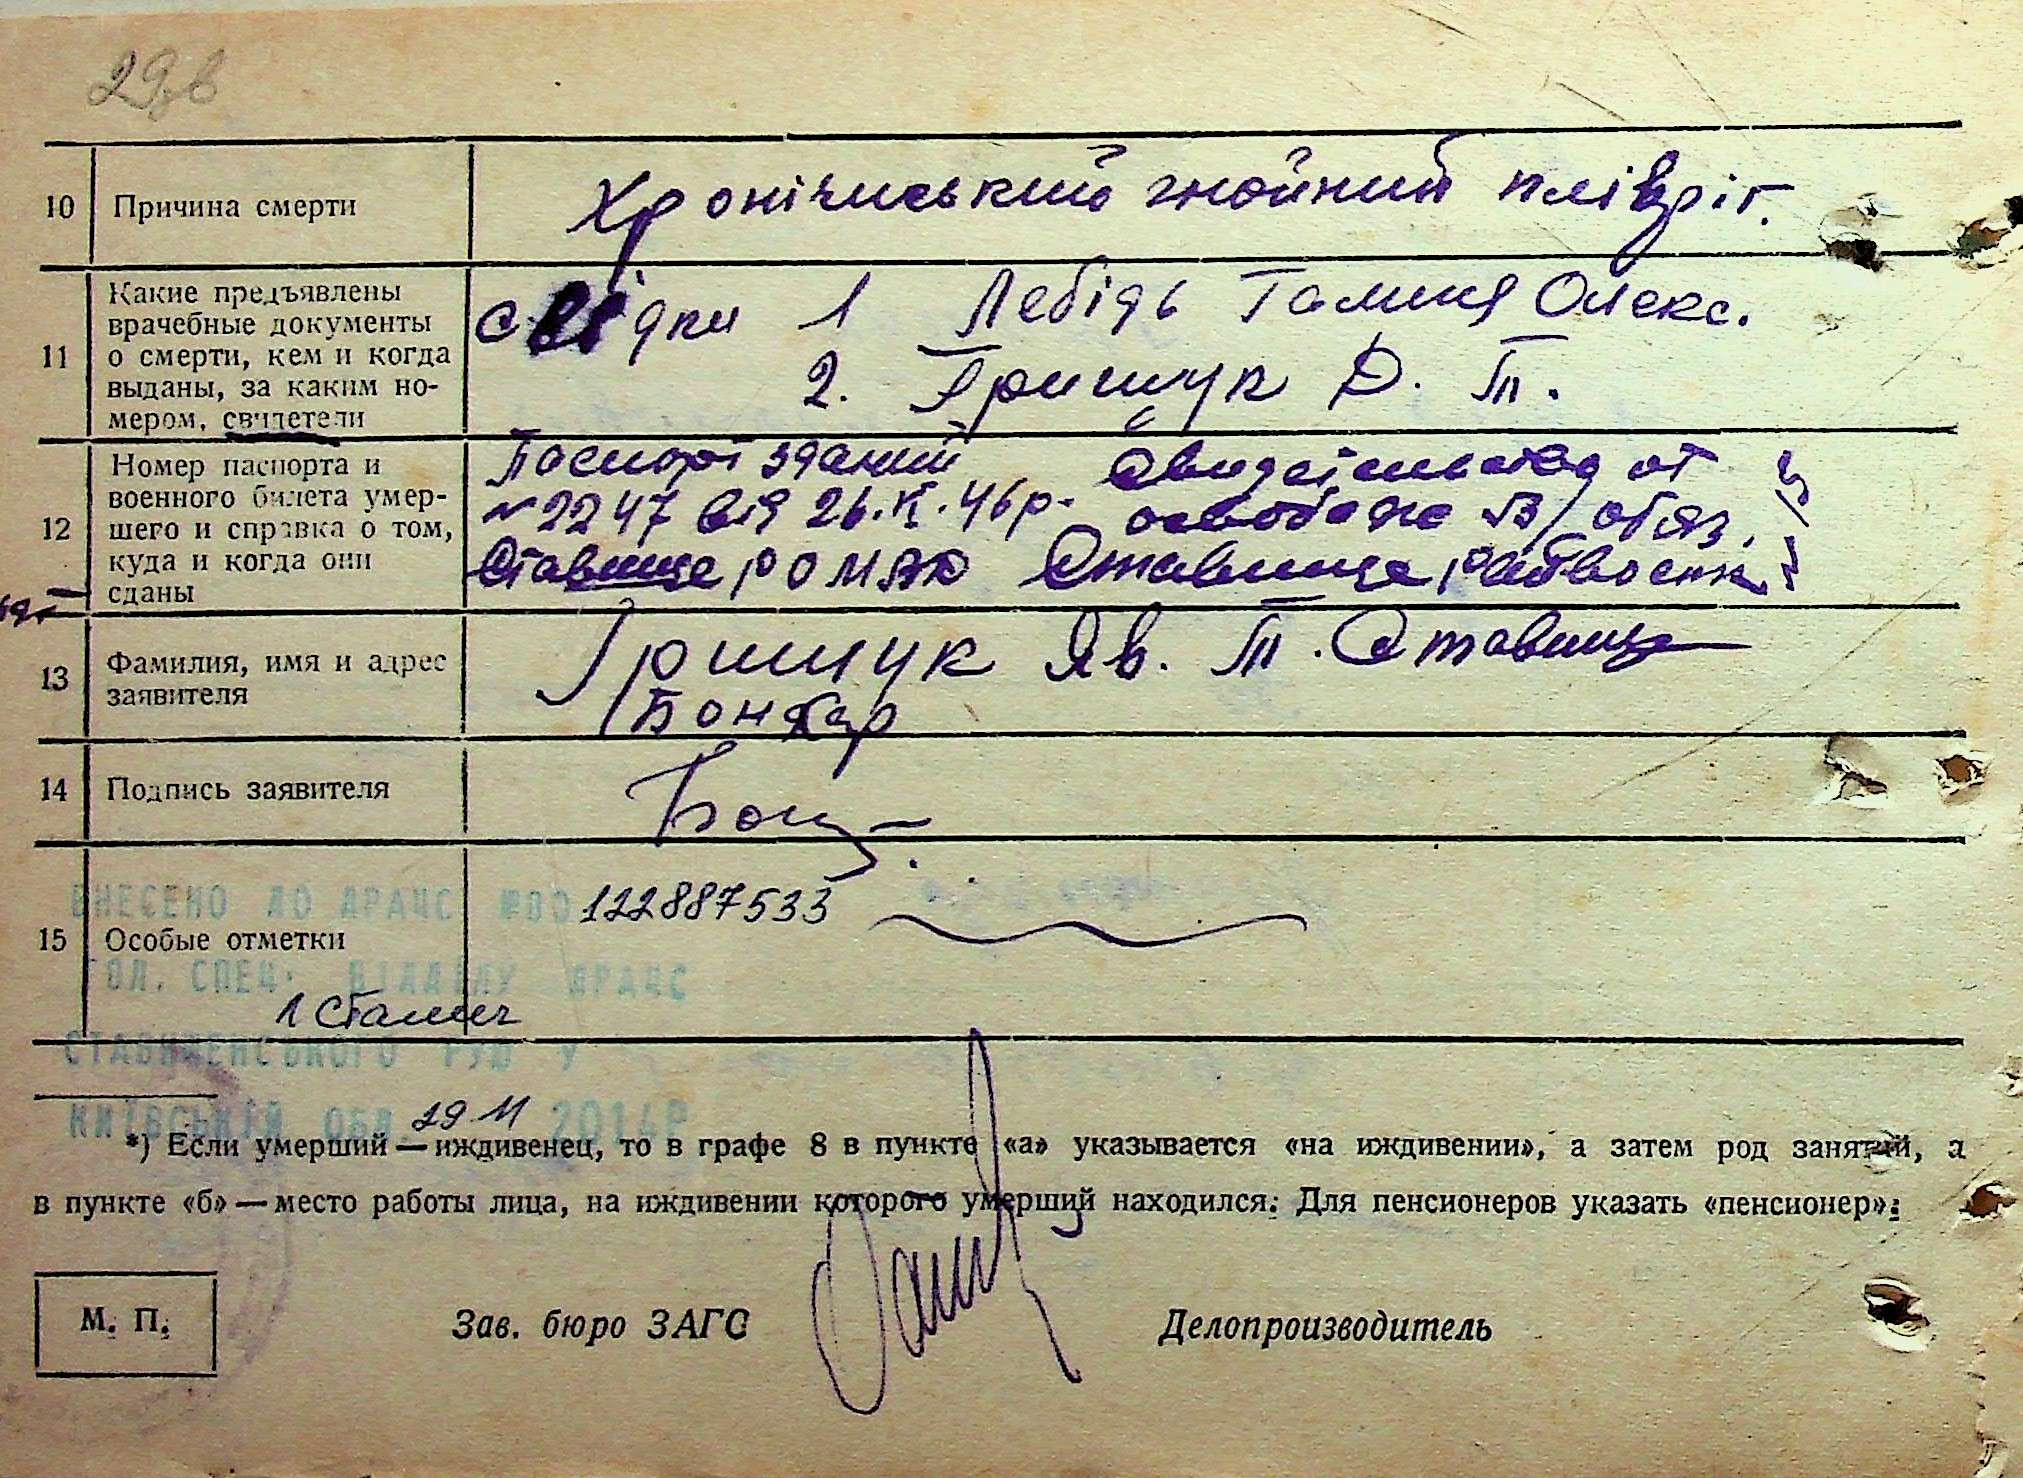 29зв
10 Причина смерти Хронічиський гнойний плівріт.
11 Какие предъявлены
врачебные документы
о смерти, кем и когда
выданы, за каким но-
мером, свидетели
свідки 1 Лебідь Галина Олекс.
2. Грищук Д. Т.
12 Номер паспорта и
военного билета умер-
шего и справка о том,
куда и когда они
сданы
Паспорт зданий
№2247 від 26.II.46р.
Ставище, РО МВД
от
освобожд В/обяз.
Ставище, райвоенк
13 Фамилия, имя и адрес
заявителя
Грищук Яв. Т. Ставище
14 Подпись заявителя
15 Особые отметки
122887533
ВНЕСЕНО ДО ДРАЦС №00
ГОЛ. СПЕЦ. ВІДДІЛУ ДРАЦС
СТАВИЩЕНСЬКОГО РУЮ У
КИЇВСЬКІЙ ОБЛ 29 11 2014Р
*) Если умерший — иждивенец, то в графе 8 в пункте «а» указывается «на иждивении», а затем род занятий, а
в пункте «б» — место работы лица, на иждивении которого умерший находился. Для пенсионеров указать «пенсионер».
М. П.
Зав. бюро ЗАГС
Делопроизводитель